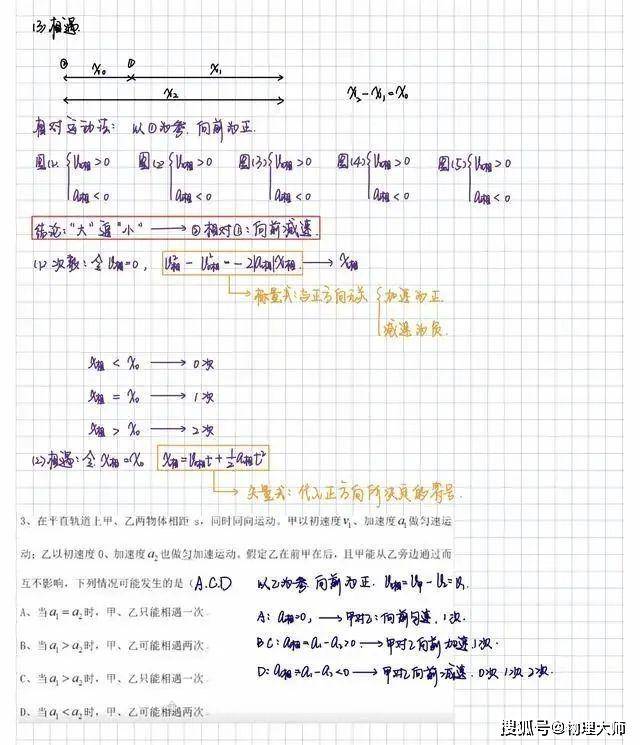 (3) 相遇.
② x₀ ① x₁
x₂
x₂-x₁=x₀
相对运动法: 以①为参, 向前为正.
图(1) { v₀相>0 图(2) { v₀相>0 图(3) { v₀相>0 图(4) { v₀相>0 图(5) { v₀相>0
a相<0 a相<0 a相<0 a相<0 a相<0
结论: "大"追"小" → ②相对①: 向前减速.
(1) 次数: 令 v相=0, v相²-v₀相²=-2|a相|x相 → x相
标量式: 与正方向无关 { 加速为正.
减速为负.
x相 < x₀ → 0次
x相 = x₀ → 1次
x相 > x₀ → 2次
(2) 相遇: 令 x相=x₀ x相=v₀相t+½a相t²
矢量式: 代入正方向所决定的符号.
3、在平直轨道上甲、乙两物体相距 s，同时同向运动。甲以初速度v₁、加速度a₁做匀速运
动；乙以初速度 0、加速度a₂也做匀加速运动。假定乙在前甲在后，且甲能从乙旁边通过而
互不影响，下列情况可能发生的是（ A.C.D 以乙为参 向前为正. v₀相=v甲-v乙=v₁.
A、当a₁=a₂时，甲、乙只能相遇一次 A: a相=0, → 甲对乙: 向前匀速, 1次.
B、当a₁>a₂时，甲、乙可能相遇两次 BC: a相=a₁-a₂>0 → 甲对乙向前加速, 1次.
C、当a₁>a₂时，甲、乙只能相遇一次 D: a相=a₁-a₂<0 → 甲对乙向前减速. 0次 1次 2次.
D、当a₁<a₂时，甲、乙可能相遇两次
搜狐号@物理大师